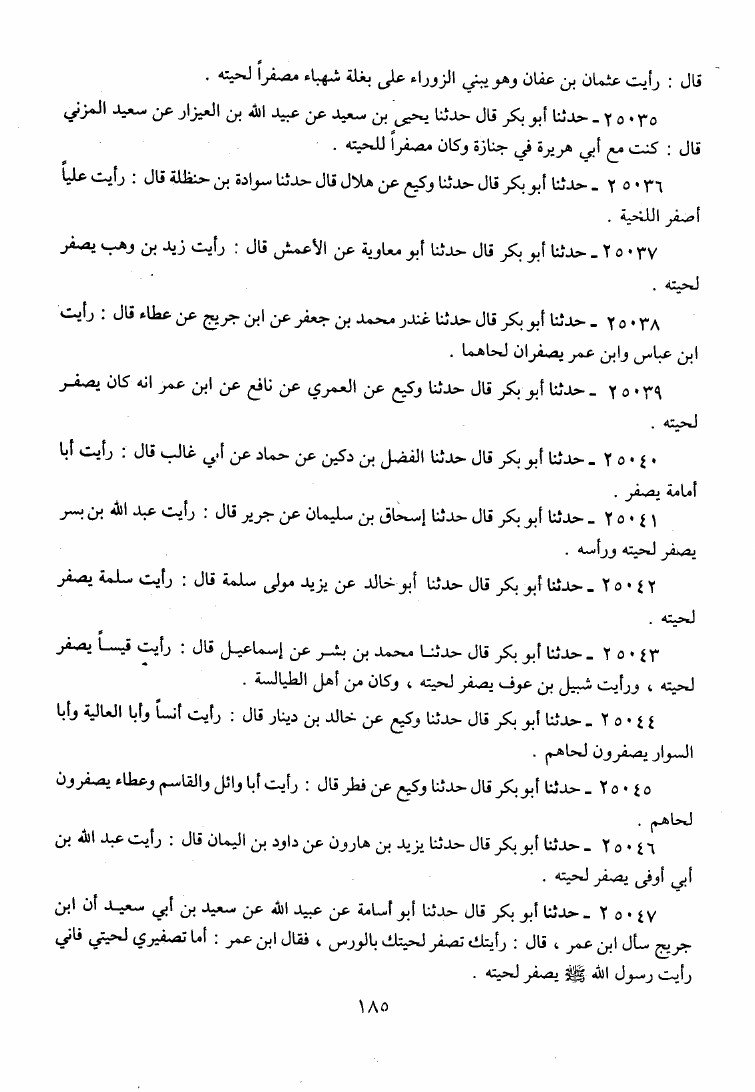 قال : رأيت عثمان بن عفان وهو يبني الزوراء على بغلة شهباء مصفراً لحيته .
٢٥٠٣٥ ـ حدثنا أبو بكر قال حدثنا يحيى بن سعيد عن عبيد الله بن العيزار عن سعيد المزني
قال : كنت مع أبي هريرة في جنازة وكان مصفراً للحيته .
٢٥٠٣٦ ـ حدثنا أبو بكر قال حدثنا وكيع عن هلال قال حدثنا سوادة بن حنظلة قال : رأيت علياً
أصفر اللحية .
٢٥٠٣٧ ـ حدثنا أبو بكر قال حدثنا أبو معاوية عن الأعمش قال : رأيت زيد بن وهب يصفر
لحيته .
٢٥٠٣٨ ـ حدثنا أبو بكر قال حدثنا غندر محمد بن جعفر عن ابن جريج عن عطاء قال : رأيت
ابن عباس وابن عمر يصفران لحاهما .
٢٥٠٣٩ ـ حدثنا أبو بكر قال حدثنا وكيع عن العمري عن نافع عن ابن عمر انه كان يصفر
لحيته .
٢٥٠٤٠ ـ حدثنا أبو بكر قال حدثنا الفضل بن دكين عن حماد عن أبي غالب قال : رأيت أبا
أمامة يصفر .
٢٥٠٤١ ـ حدثنا أبو بكر قال حدثنا إسحاق بن سليمان عن جرير قال : رأيت عبد الله بن بسر
يصفر لحيته ورأسه .
٢٥٠٤٢ ـ حدثنا أبو بكر قال حدثنا أبو خالد عن يزيد مولى سلمة قال : رأيت سلمة يصفر
لحيته .
٢٥٠٤٣ ـ حدثنا أبو بكر قال حدثنا محمد بن بشر عن إسماعيل قال : رأيت قيساً يصفر
لحيته ، ورأيت شبيل بن عوف يصفر لحيته ، وكان من أهل الطيالسة .
٢٥٠٤٤ ـ حدثنا أبو بكر قال حدثنا وكيع عن خالد بن دينار قال : رأيت أنساً وأبا العالية وأبا
السوار يصفرون لحاهم .
٢٥٠٤٥ ـ حدثنا أبو بكر قال حدثنا وكيع عن فطر قال : رأيت أبا وائل والقاسم وعطاء يصفرون
لحاهم .
٢٥٠٤٦ ـ حدثنا أبو بكر قال حدثنا يزيد بن هارون عن داود بن اليمان قال : رأيت عبد الله بن
أبي أوفى يصفر لحيته .
٢٥٠٤٧ ـ حدثنا أبو بكر قال حدثنا أبو أسامة عن عبيد الله عن سعيد بن أبي سعيد أن ابن
جريج سأل ابن عمر ، قال : رأيتك تصفر لحيتك بالورس ، فقال ابن عمر : أما تصفيري لحيتي فاني
رأيت رسول الله ﷺ يصفر لحيته .
١٨٥